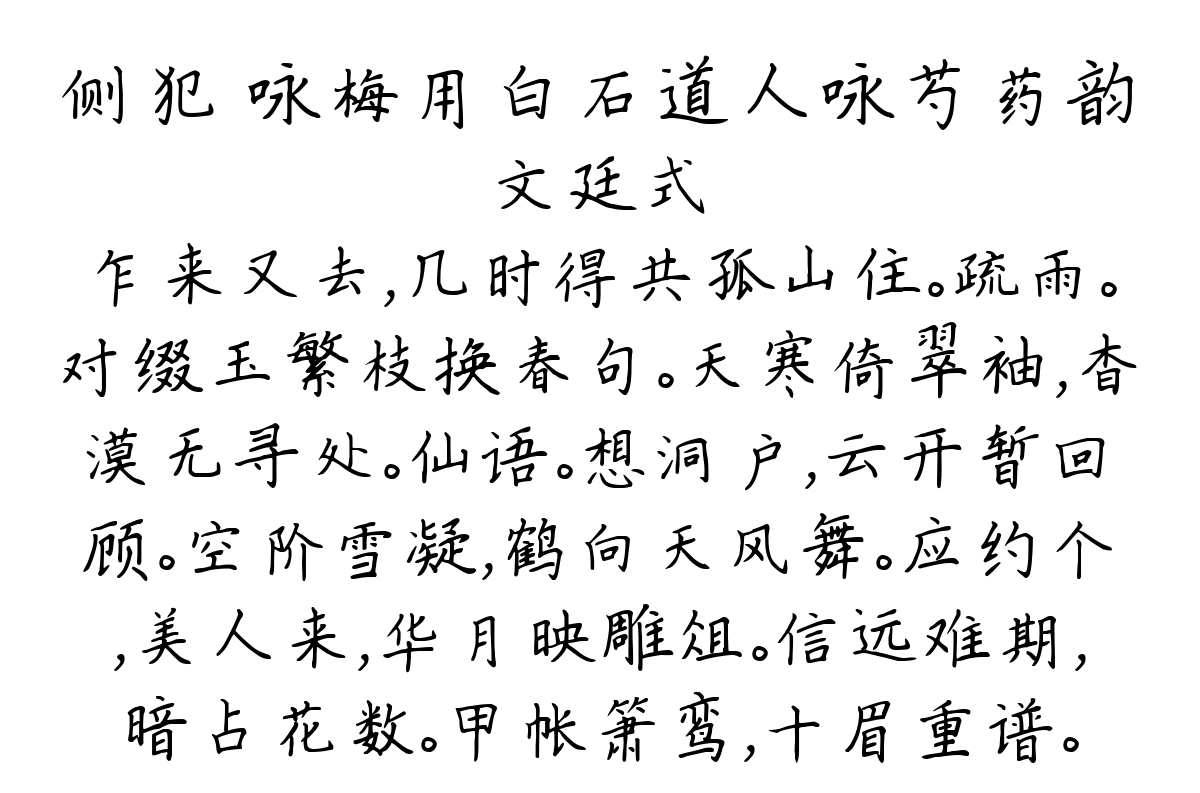 侧犯 咏梅用白石道人咏芍药韵
文廷式
乍来又去,几时得共孤山住。疏雨。
对缀玉繁枝换春句。天寒倚翠袖,杳
漠无寻处。仙语。想洞户,云开暂回
顾。空阶雪凝,鹤向天风舞。应约个
,美人来,华月映雕俎。信远难期,
暗占花数。甲帐箫鸾,十眉重谱。